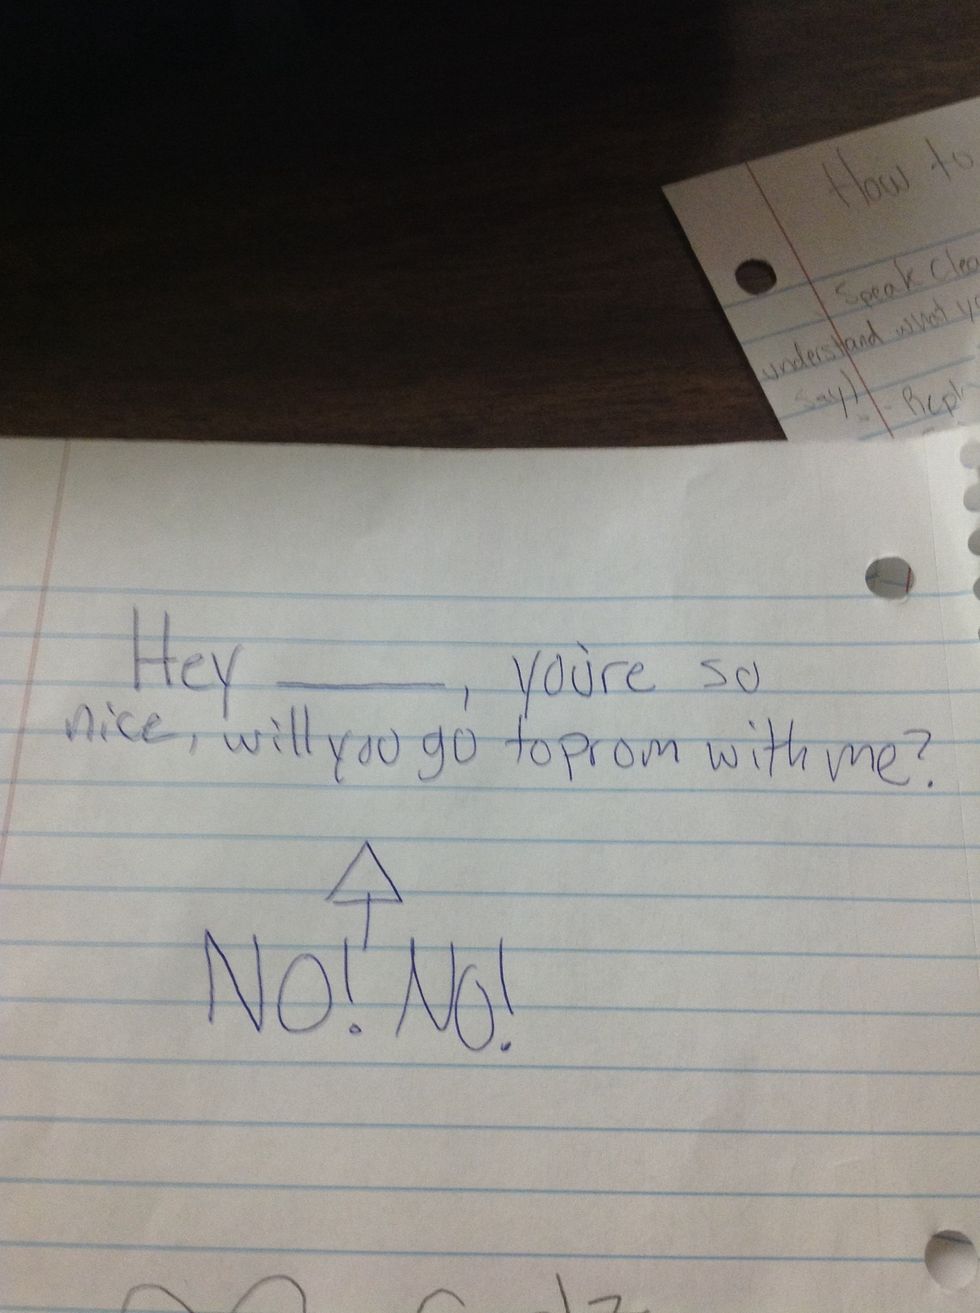 How to
Speak Clea
understand what yo
say!) - Repl
Hey ______, you're so
nice, will you go to prom with me?
NO! NO!